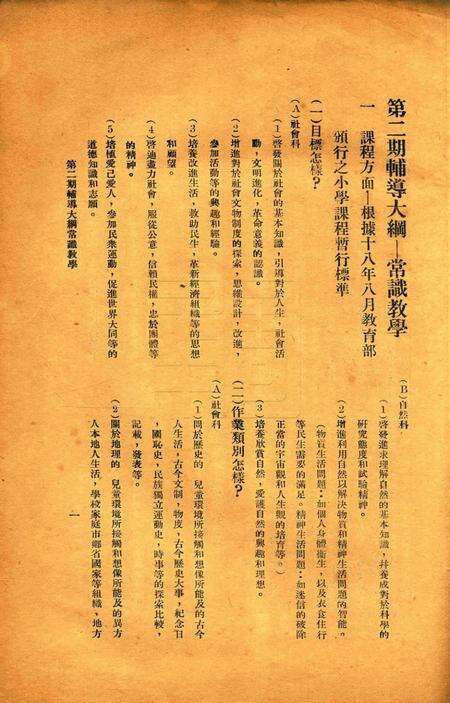 第二期輔導大綱—常識教學
一　課程方面—根據十八年八月教育部
頒行之小學課程暫行標準
(一)目標怎樣？
(A)社會科
(1)啓發關於社會的基本知識，引導對於人生，社會活
動，文明進化，革命意義的認識。
(2)增進對於社會文物制度的探索，思維設計，改進，
參加活動等的興趣和經驗。
(3)培養改進生活，救助民生，革新經濟組織等的思想
和願望。
(4)啓迪盡力社會，服從公意，信賴民權，忠於團體等
的精神。
(5)培植愛己愛人，參加民衆運動，促進世界大同等的
道德知識和志願。
第二期輔導大綱常識教學
(B)自然科
(1)啓發進求理解自然的基本知識，幷養成對於科學的
硏究態度和試驗精神。
(2)增進利用自然以解決物質和精神生活問題的智能。
(物質生活問題：如個人身體衞生，以及衣食住行
等民生需要的滿足。精神生活問題：如迷信的破除
正當的宇宙觀和人生觀的培育等。)
(3)培養欣賞自然，愛護自然的興趣和理想。
(二)作業類別怎樣？
(A)社會科
(1)關於歷史的　兒童環境所接觸和想像所能及的古今
人生活，古今文制，物度，古今歷史大事，紀念日
，國恥史，民族獨立運動史，時事等的探索比較，
記載，發表等。
(2)關於地理的　兒童環境所接觸和想像所能及的異方
人本地人生活，學校家庭市鄉省國家等組織，地方
一